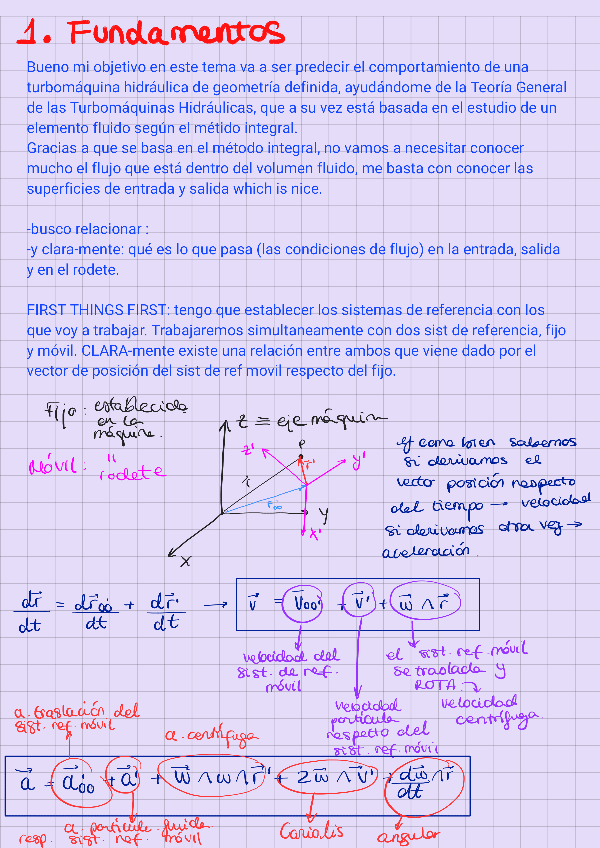 1. Fundamentos
Bueno mi objetivo en este tema va a ser predecir el comportamiento de una
turbomáquina hidráulica de geometría definida, ayudándome de la Teoría General
de las Turbomáquinas Hidráulicas, que a su vez está basada en el estudio de un
elemento fluido según el métido integral.
Gracias a que se basa en el método integral, no vamos a necesitar conocer
mucho el flujo que está dentro del volumen fluido, me basta con conocer las
superficies de entrada y salida which is nice.
-busco relacionar :
-y clara-mente: qué es lo que pasa (las condiciones de flujo) en la entrada, salida
y en el rodete.
FIRST THINGS FIRST: tengo que establecer los sistemas de referencia con los
que voy a trabajar. Trabajaremos simultaneamente con dos sist de referencia, fijo
y móvil. CLARA-mente existe una relación entre ambos que viene dado por el
vector de posición del sist de ref movil respecto del fijo.
Fijo: establecida
en la
máquina.
Móvil: "
rodete
z ≡ eje máquina
z'
P
r'
y'
r
r₀₀'
y
x'
x
Y como bien sabemos
si derivamos el
vector posición respecto
del tiempo → velocidad
si derivamos otra vez →
aceleración.
dr⃗/dt = dr⃗₀₀'/dt + dr⃗'/dt → v⃗ = v⃗₀₀' + v⃗' + w⃗ ∧ r⃗
velocidad del
sist. de ref.
móvil
velocidad
partícula
respecto del
sist. ref. móvil
el sist. ref móvil
se traslada y
ROTA → velocidad
centrífuga
a. traslación del
sist. ref. móvil
a. centrífuga
a⃗ = a⃗₀₀' + a⃗' + w⃗ ∧ w ∧ r⃗' + 2w⃗ ∧ v⃗' + dw⃗/dt ∧ r⃗
a partícula fluida
resp. sist. ref. móvil
Coriolis
angular